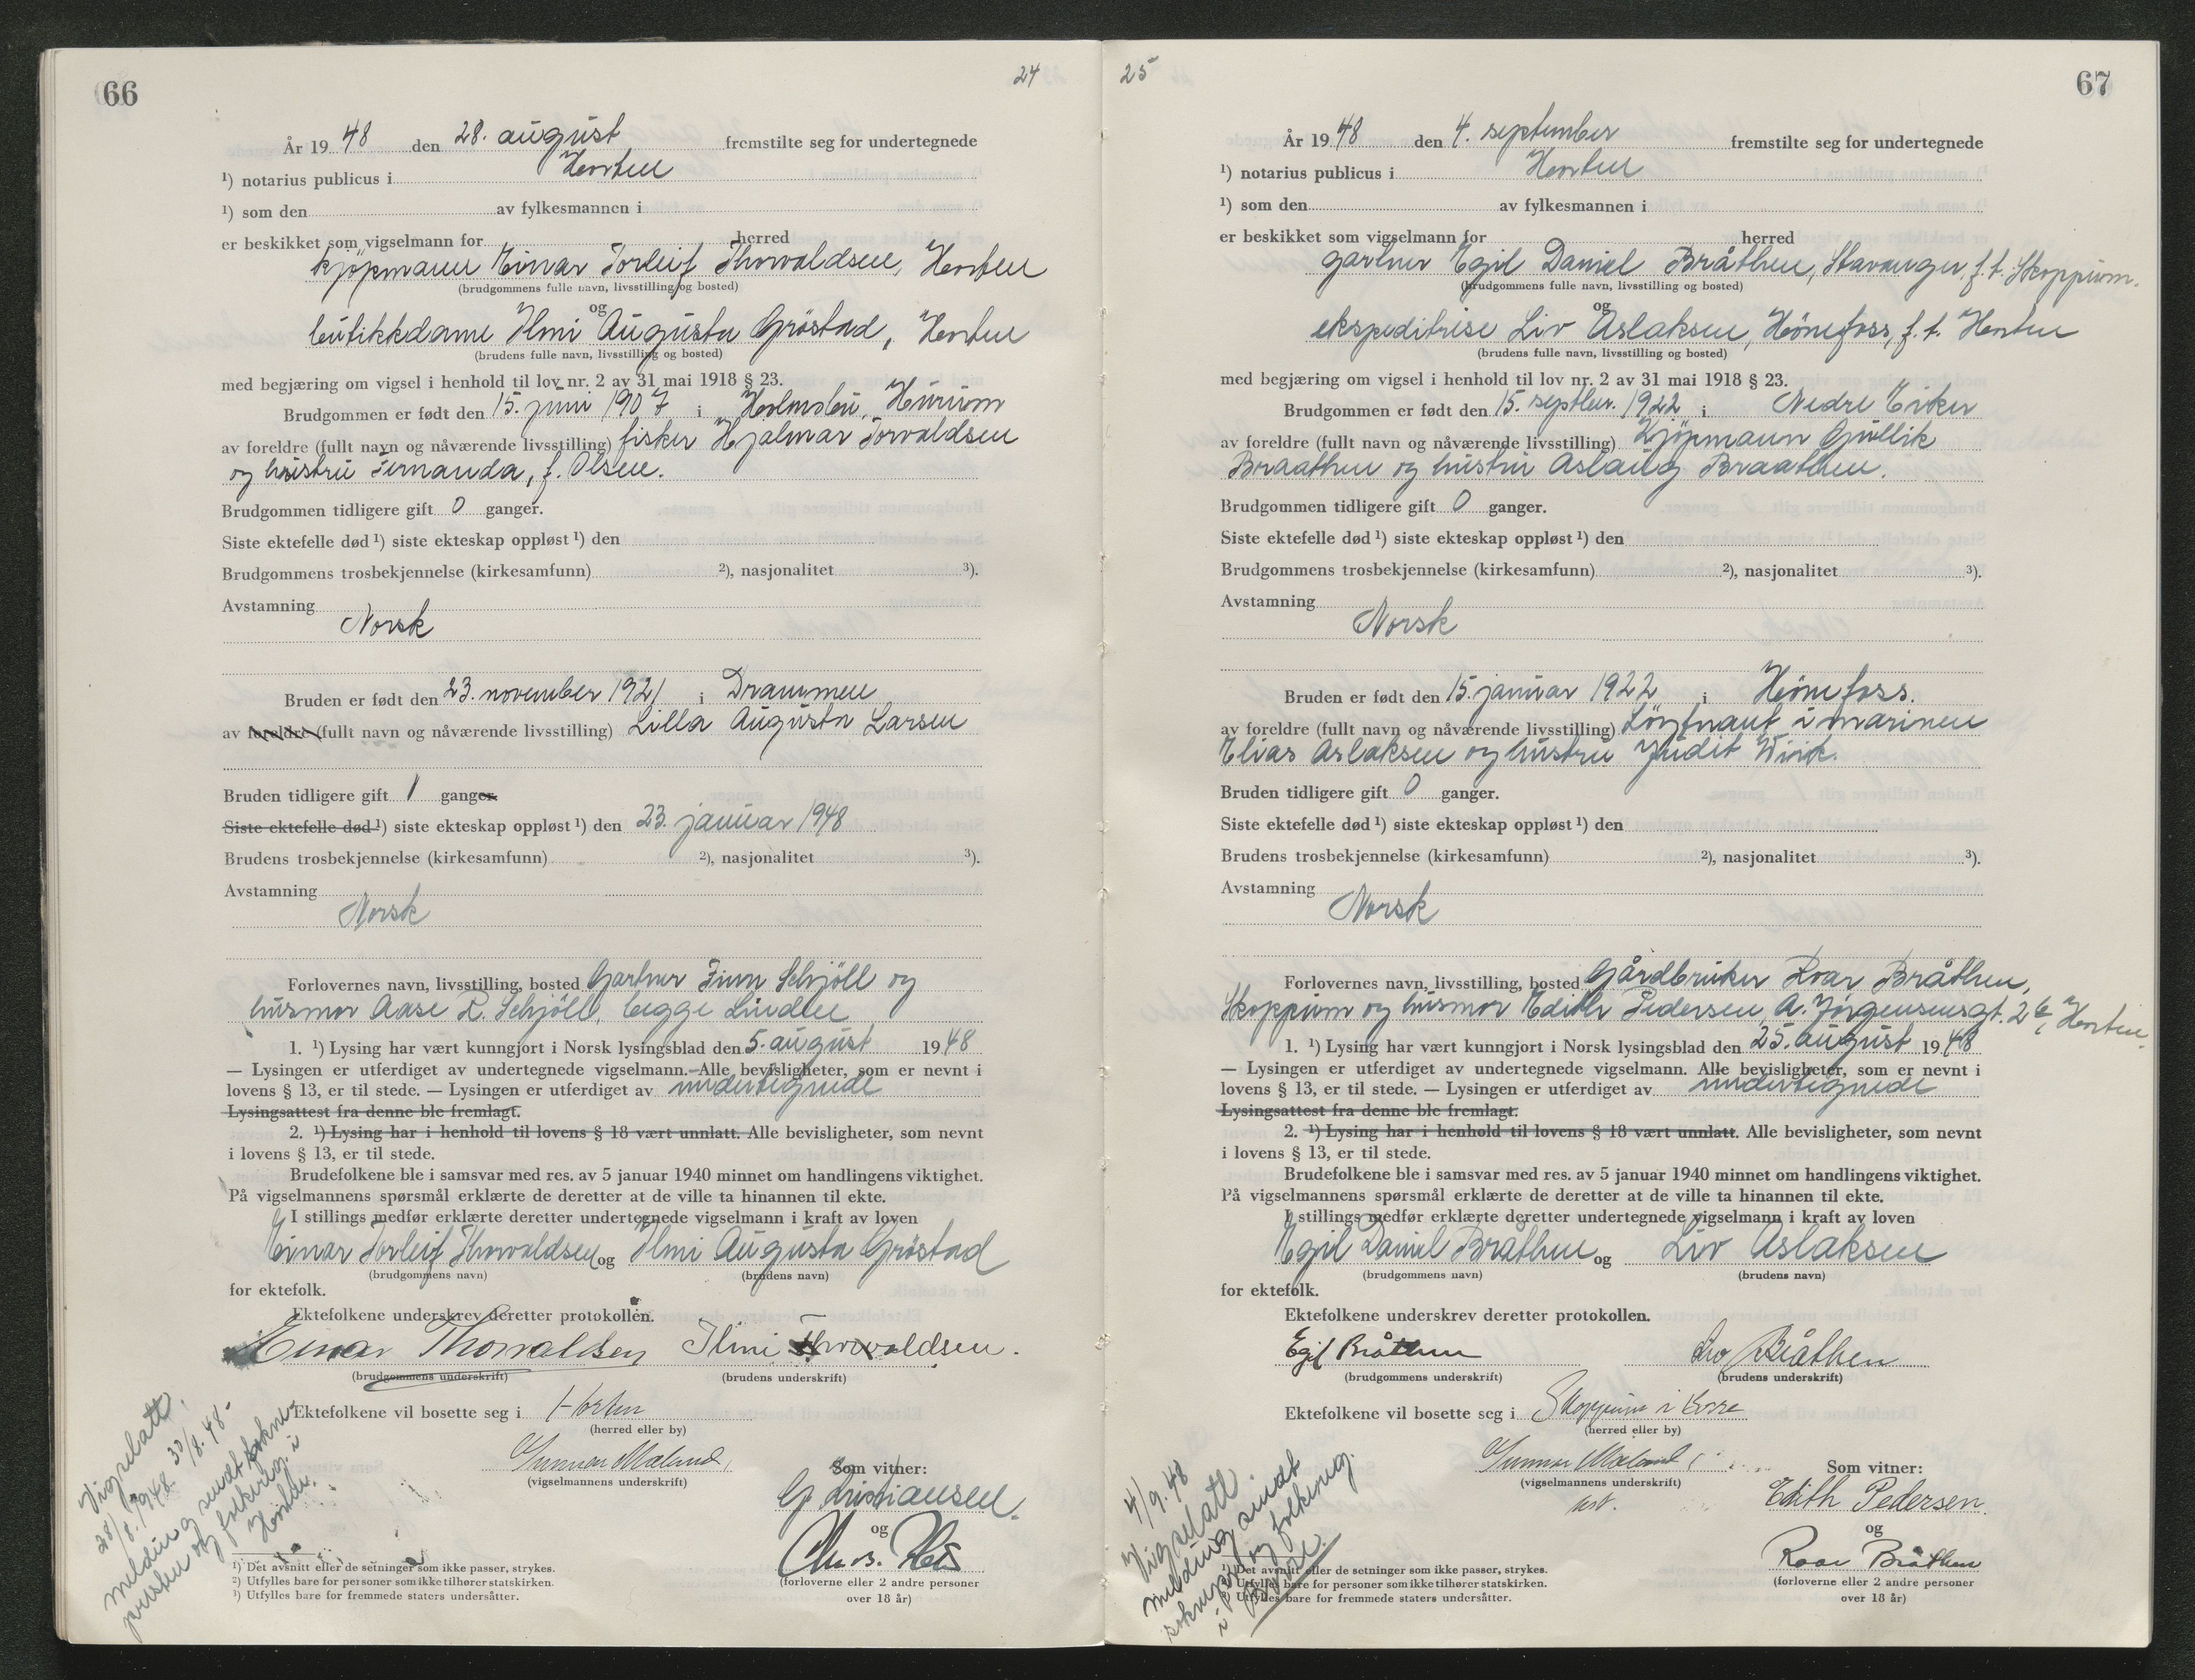 66
24
År 1948 den 28. august fremstilte seg for undertegnede
¹) notarius publicus i Horten
¹) som den av fylkesmannen i
er beskikket som vigselmann for herred
kjöpmann Einar Torleif Thorvaldsen, Horten
(brudgommens fulle navn, livsstilling og bosted)
og
butikkdame Ilmi Augusta Gröstad, Horten
(brudens fulle navn, livsstilling og bosted)
med begjæring om vigsel i henhold til lov nr. 2 av 31 mai 1918 § 23.
Brudgommen er født den 15. juni 1907 i Holmsbu, Hurum
av foreldre (fullt navn og nåværende livsstilling) fisker Hjalmar Torvaldsen
og hustru Fernanda, f. Olsen.
Brudgommen tidligere gift 0 ganger.
Siste ektefelle død ¹) siste ekteskap oppløst ¹) den
Brudgommens trosbekjennelse (kirkesamfunn) ²), nasjonalitet ³).
Avstamning
Norsk
Bruden er født den 23. november 1921 i Drammen
av foreldre (fullt navn og nåværende livsstilling) Lilla Augusta Larsen
Bruden tidligere gift 1 ganger
Siste ektefelle død ¹) siste ekteskap oppløst ¹) den 23. januar 1948
Brudens trosbekjennelse (kirkesamfunn) ²), nasjonalitet ³).
Avstamning
Norsk
Forlovernes navn, livsstilling, bosted Gartner Finn Schjöll og
husmor Aase R. Schjöll, begge Linden
1. ¹) Lysing har vært kunngjort i Norsk lysingsblad den 5. august 1948
— Lysingen er utferdiget av undertegnede vigselmann. Alle bevisligheter, som er nevnt i
lovens § 13, er til stede. — Lysingen er utferdiget av undertegnede
Lysingsattest fra denne ble fremlagt.
2. ¹) Lysing har i henhold til lovens § 18 vært unnlatt. Alle bevisligheter, som nevnt
i lovens § 13, er til stede.
Brudefolkene ble i samsvar med res. av 5 januar 1940 minnet om handlingens viktighet.
På vigselmannens spørsmål erklærte de deretter at de ville ta hinannen til ekte.
I stillings medfør erklærte deretter undertegnede vigselmann i kraft av loven
Einar Torleif Thorvaldsen og Ilmi Augusta Gröstad
(brudgommens navn) (brudens navn)
for ektefolk.
Ektefolkene underskrev deretter protokollen.
Einar Thorvaldsen Ilmi Thorvaldsen.
(brudgommens underskrift) (brudens underskrift)
Ektefolkene vil bosette seg i Horten
(herred eller by)
Gunnar Mæland
(vigselmannens underskrift)
Som vitner:
G. Kristiansen.
og
(forloverne eller 2 andre personer
over 18 år)
Vigselatt.
28/8. 1948. 30/8. 48
melding sendt sokne-
presten og folkereg. i
Horten.
¹) Det avsnitt eller de setninger som ikke passer, strykes.
²) Utfylles bare for personer som ikke tilhører statskirken.
³) Utfylles bare for fremmede staters undersåtter.
25
67
År 1948 den 4. september fremstilte seg for undertegnede
¹) notarius publicus i Horten
¹) som den av fylkesmannen i
er beskikket som vigselmann for herred
gartner Egil Daniel Bråthen, Stavanger, f.t. Skoppum.
(brudgommens fulle navn, livsstilling og bosted)
og
ekspeditrise Liv Aslaksen, Hönefoss, f.t. Horten
(brudens fulle navn, livsstilling og bosted)
med begjæring om vigsel i henhold til lov nr. 2 av 31 mai 1918 § 23.
Brudgommen er født den 15. septbr. 1922 i Nedre Eiker
av foreldre (fullt navn og nåværende livsstilling) Kjöpmann Gullik
Braathen og hustru Aslaug Braathen.
Brudgommen tidligere gift 0 ganger.
Siste ektefelle død ¹) siste ekteskap oppløst ¹) den
Brudgommens trosbekjennelse (kirkesamfunn) ²), nasjonalitet ³).
Avstamning
Norsk
Bruden er født den 15. januar 1922 i Hönefoss.
av foreldre (fullt navn og nåværende livsstilling) Löytnant i marinen
Elias Aslaksen og hustru Judit Wirk.
Bruden tidligere gift 0 ganger.
Siste ektefelle død ¹) siste ekteskap oppløst ¹) den
Brudens trosbekjennelse (kirkesamfunn) ²), nasjonalitet ³).
Avstamning
Norsk
Forlovernes navn, livsstilling, bosted Gårdbruker Roar Bråthen,
Skoppum og husmor Edith Pedersen, A. Jörgensensgt. 2b, Horten.
1. ¹) Lysing har vært kunngjort i Norsk lysingsblad den 25. august 1948
— Lysingen er utferdiget av undertegnede vigselmann. Alle bevisligheter, som er nevnt i
lovens § 13, er til stede. — Lysingen er utferdiget av undertegnede
Lysingsattest fra denne ble fremlagt.
2. ¹) Lysing har i henhold til lovens § 18 vært unnlatt. Alle bevisligheter, som nevnt
i lovens § 13, er til stede.
Brudefolkene ble i samsvar med res. av 5 januar 1940 minnet om handlingens viktighet.
På vigselmannens spørsmål erklærte de deretter at de ville ta hinannen til ekte.
I stillings medfør erklærte deretter undertegnede vigselmann i kraft av loven
Egil Daniel Bråthen og Liv Aslaksen
(brudgommens navn) (brudens navn)
for ektefolk.
Ektefolkene underskrev deretter protokollen.
Egil Bråthen Liv Bråthen
(brudgommens underskrift) (brudens underskrift)
Ektefolkene vil bosette seg i Skoppum i Borre
(herred eller by)
Gunnar Mæland
(vigselmannens underskrift)
Som vitner:
Edith Pedersen.
og
Roar Bråthen
(forloverne eller 2 andre personer
over 18 år)
4/9. 48
Vigselatt.
melding sendt
sokneprest og folkereg.
i Borre.
¹) Det avsnitt eller de setninger som ikke passer, strykes.
²) Utfylles bare for personer som ikke tilhører statskirken.
³) Utfylles bare for fremmede staters undersåtter.